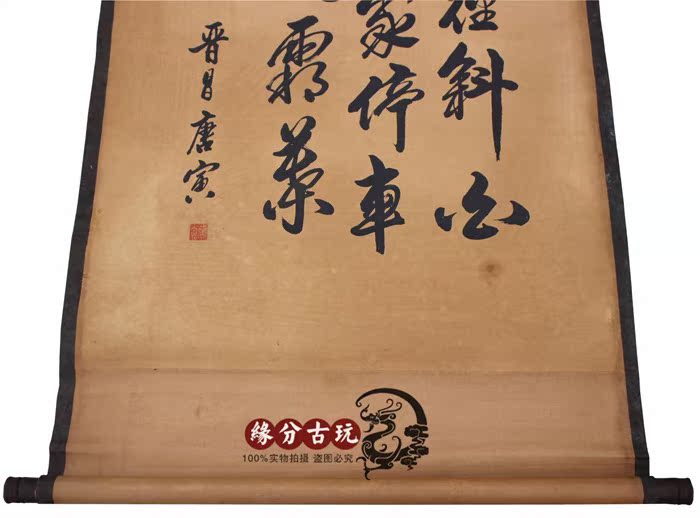 径斜白
家停車
霜葉
晋昌唐寅
緣分古玩
100%实物拍摄 盗图必究